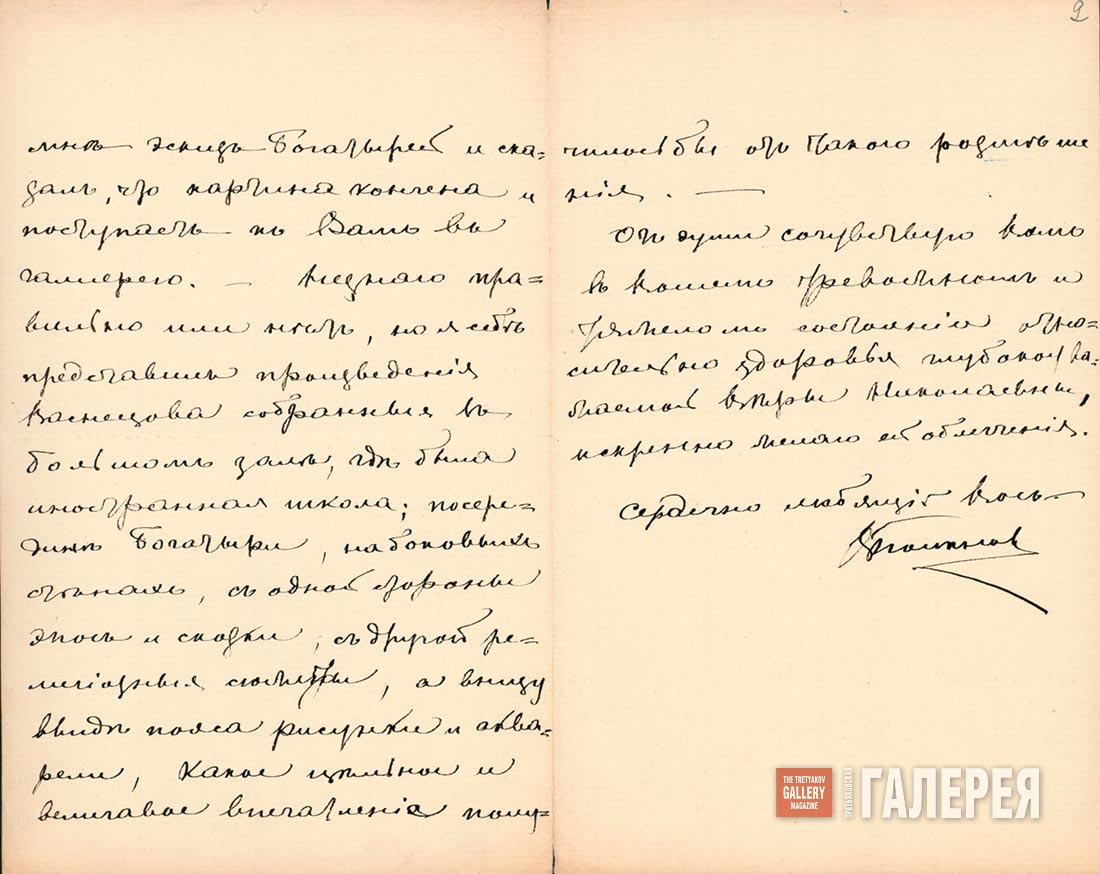 2
мнѣ эскизъ Богатырей и ска=
залъ, что картина кончена и
поступаетъ къ Вамъ въ
галлерею. — Незнаю пра=
вильно или нѣтъ, но я себѣ
представилъ произведенія
Васнецова собранныя въ
большомъ залѣ, гдѣ была
иностранная школа; посере=
динѣ Богатыри, на боковыхъ
стѣнахъ, съ одной стороны
эпосъ и сказки, съ другой ре=
лигіозныя сюжеты, а внизу
ввидѣ пояса рисунки и аква=
рели, Какое цѣльное и
величавое впечатленіе полу=
чилось бы отъ такого
нія. —
Отъ души сочувствую вамъ
въ вашемъ тревожномъ и
тяжеломъ состояніи отно=
сительно здоровья глубокоува=
жаемой Вѣры Николаевны,
искренно желаю ей облегченія.
Сердечно любящій Васъ
ВПоленов
THE TRETYAKOV
GALLERY
MAGAZINE
ТРЕТЬЯКОВСКАЯ
ГАЛЕРЕЯ